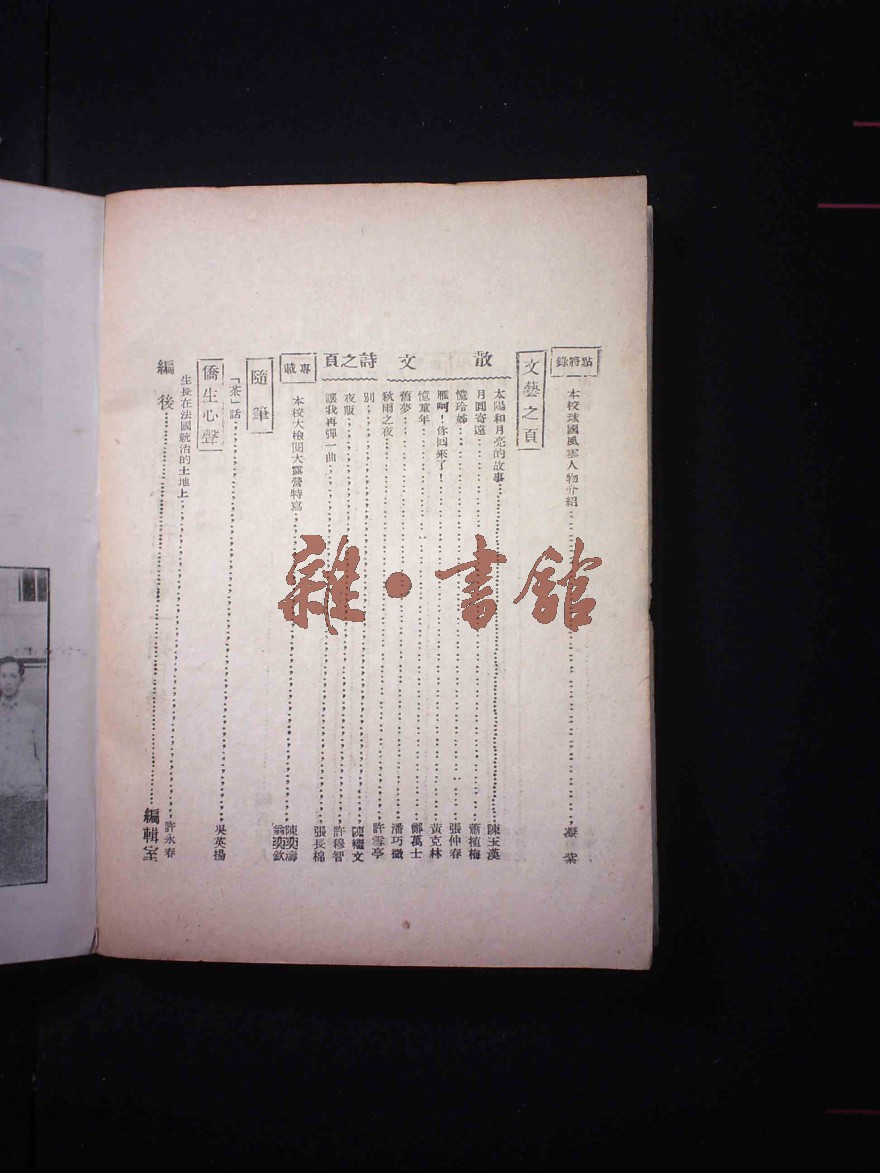 點將錄
本校球國風雲人物介紹……凝 紫
文藝之頁
散文
太陽和月亮的故事……陳玉漢
月圓寄遠……蕭植梅
憶玲姊……張仲春
雁呵！你回來了！……黃克林
憶童年……鄭萬士
舊夢……潘巧微
秋雨之夜……許雪亭
詩之頁
別……陳繼文
夜販……許穆智
讓我再彈一曲……張長棉
專載
本校大檢閱大露營特寫……陳奕濤 翁奕欽
隨筆
「茶」話……吳英揚
僑生心聲
生長在法國統治的土地上……許永春
編後……編輯室
雜·書館